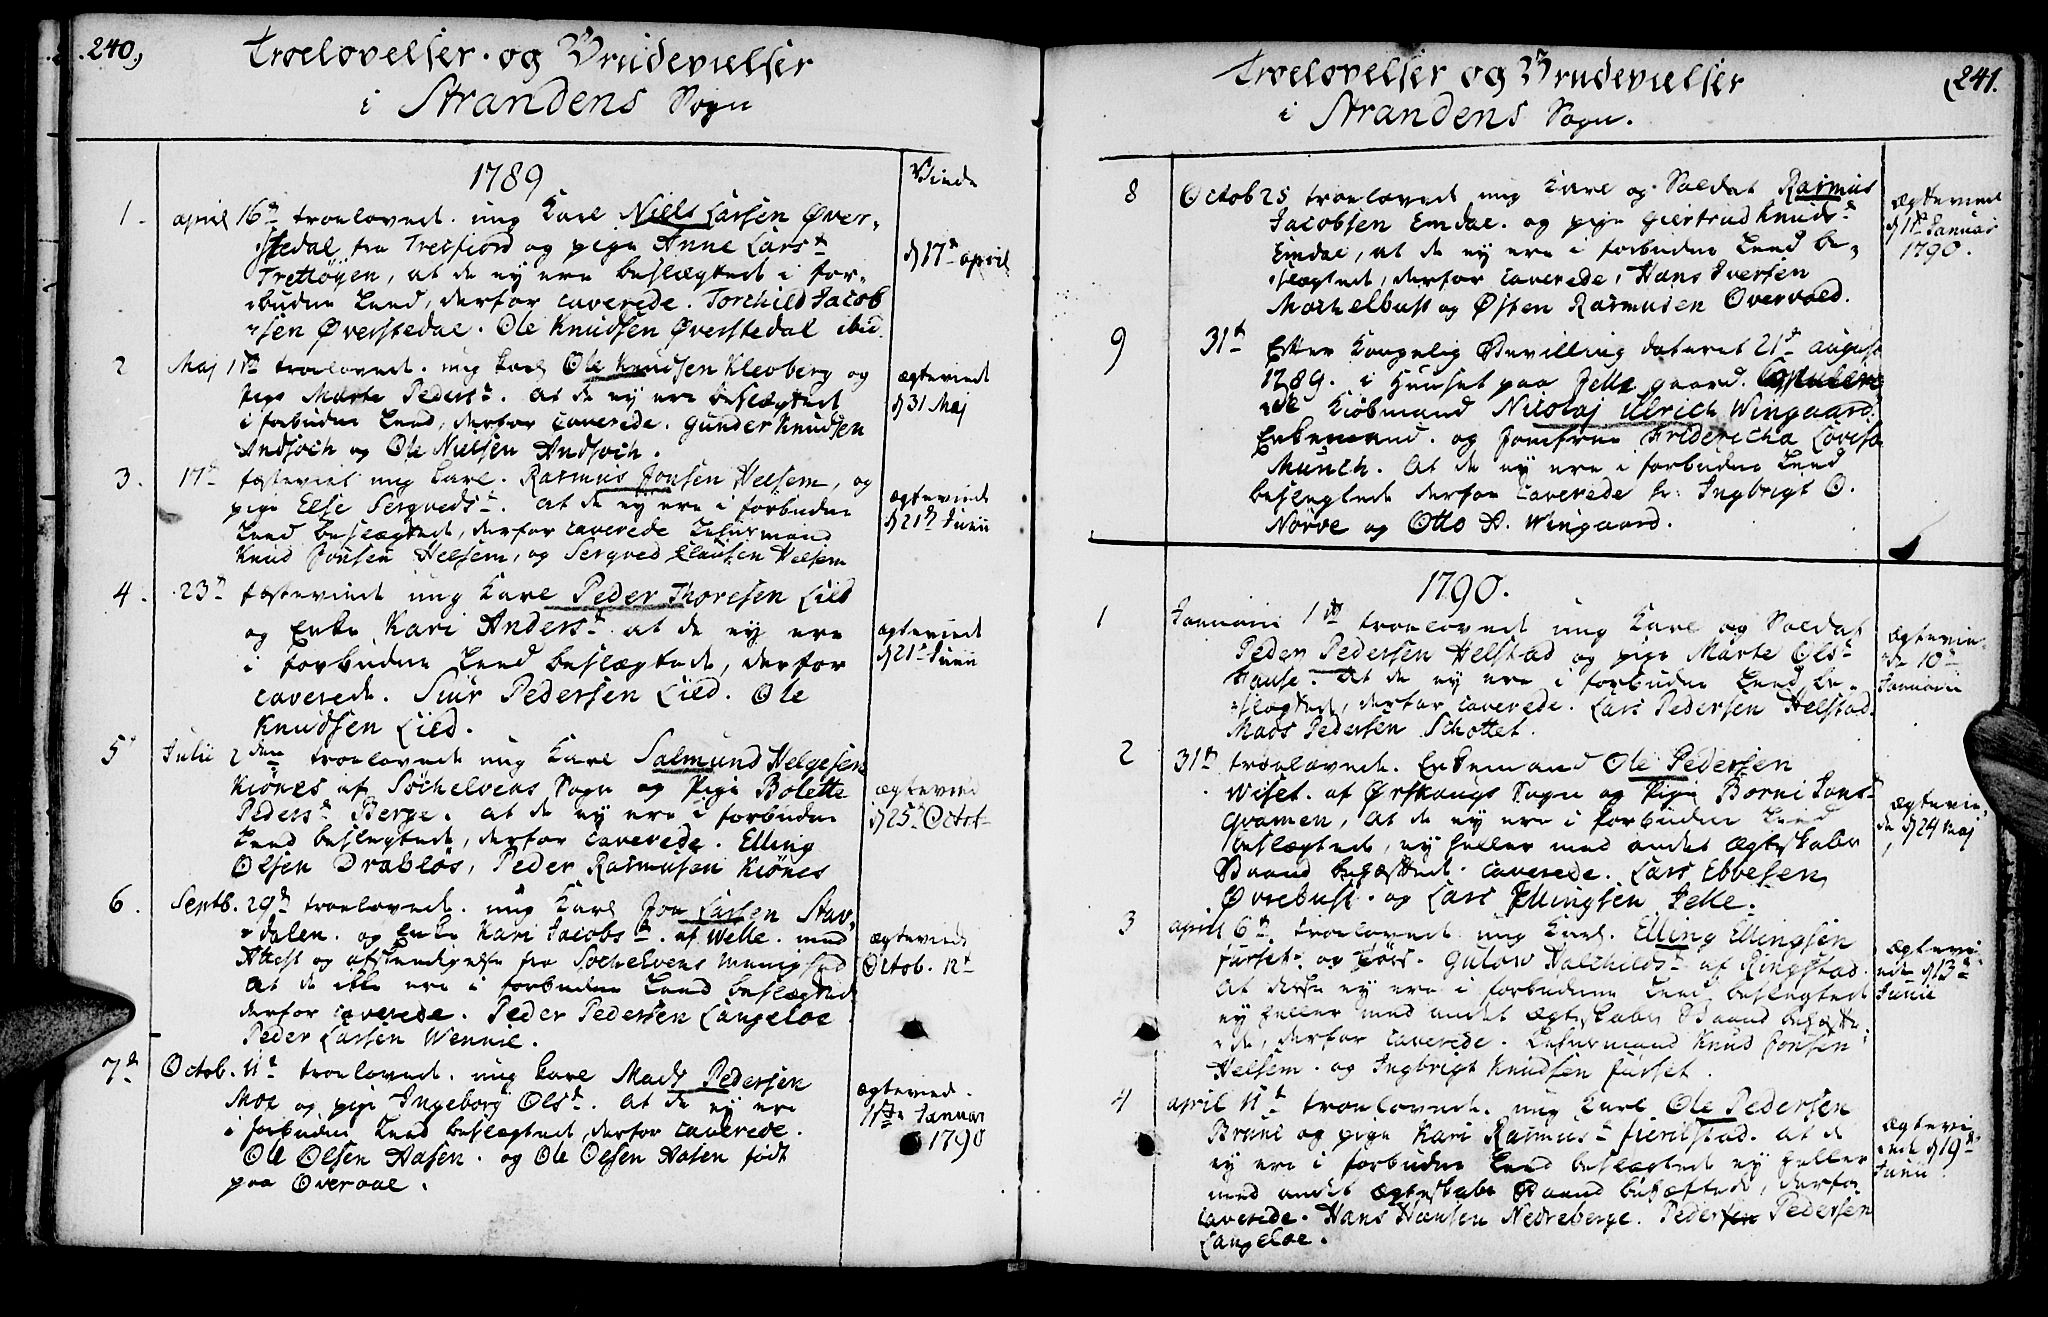 240,
Troelovelser og Brudevielser
i Strandens Sogn
1789
Viede
1. april 16de troelovede ung Karl Niels Larsen Øver-
stedal fra Tresfiord og pige Anne Lars d.
Trettøyen, at de ey ere beslægtede i for-
budne Leed, derfor caverede. Torchild Jacob
sen Øverstedal. Ole Knudsen Øverstedal ibid.
d 17de april
2 Maj 1te troelovede ung karl Ole Knudsen Klevberg og
Pige Marte Peders d. At de ey ere beslægtede
i forbudne Leed, derfor caverede. Gunder Knudsen
Andsoch og Ole Nielsen Andsoch.
ægteviede
d 31 Maj
3. 17de festeviet ung karl. Rasmus Jonsen Helsem, og
pige Else Sergveds d. At de ey ere i forbudne
Leed beslægtede, derfor caverede Lehnsmand
Knud Jonsen Helsem, og Sergved Clausen Helsem
ægteviede
d 21de Junii
4. 23de festeviede ung Karl Peder Thoresen Lied
og Enke Kari Anders d. at de ey ere
i forbudne Leed beslægtede, derfor
caverede. Siur Pedersen Lied. Ole
Knudsen Lied.
ægteviede
d 21de Junii
5 Julii 2den troelovede ung Karl Salmund Helgesen
Kiønes af Søchelvens Sogn og Pige Bolette
Peders d. Berge. at de ey ere i forbudne
Leed beslegtede, derfor caverede. Elling
Olsen Drabløs, Peder Rasmusen Kiønes
ægteviede
d 25de Octob
6. Septb. 29de troelovede. ung Karl Jon Larsen Stav-
dalen. og Enke Kari Jacobs d. af Welle. med
Attest og afstendigelse fra Søchelvens Menighed
at de ikke ere i forbudne Leed beslægtede
derfor caverede. Peder Pedersen Langeloe
Peder Larsen Wennie.
ægteviede
Octob. 12te
7de Octob. 11te troelovede. ung karl Mads Pedersen
Moe og pige Ingeborg Ols d. At de ey ere
i forbudne Leed beslegtede, derfor caverede.
Ole Olsen Aasen. og Ole Olsen Aasen født
paa Overaae.
ægteviede.
Januar
1790
241.
Troelovelser og Brudevielser
i Strandens Sogn.
8 Octob 25 troelovede ung Karl og Soldat Rasmus
Jacobsen Emdal. og pige Giertrud Knuds d.
Emdal, at de ey ere i forbudne Leed be-
slægtede, derfor caverede, Hans Iversen
Mochelbust og Østen Rasmusen Overvold.
ægteviede
d 1te Januar
1790.
9 31te Efter Kongelig Bevilling dateret 21de august
1789. i Huuset paa Jelle gaard. Copulere-
de Kiøbmand Nicolaj Ulrich Wingaard.
Enkemand. og Jomfrue Fridericha Lovisa
Munch. At de ey ere i forbudne Leed
beslegtede derfor caverede hr: Ingbrigt O.
Nørve og Otto A. Wingaard.
1790.
1 Januarii 1te troelovede ung Karl og Soldat
Peder Pedersen Helstad og pige Marte Ols d.
Hause. At de ey ere i forbudne Leed be-
slægtede, derfor caverede. Lars Pedersen Helstad.
Mads Pedersen Schottet.
ægtevie-
de 10de
Januarii
2 31te troelovede. Enkemand Ole Pedersen
Wiset. af Ørskougs Sogn og Pige Borni Jons d.
Gvamen, At de ey ere i forbudne Leed
beslægtede, ey heller med andet Ægteskabs
Baand behæftede. caverede. Lars Ebbesen
Øvrebust. og Lars Ellingsen Jelle.
ægtevie-
de d 24 Maj
3 april 6te troelovede ung Karl. Elling Ellingsen
furset. og Gulow Halchilds d. af Ringstad.
At disse ey ere i forbudne Leed beslegtede
ey heller med andet Ægteskabs Baand behæfte-
de, derfor caverede. Lehnsmand Knud Jonsen
Helsem. og Ingbrigt Knudsen furset.
ægtevi-
ede d 13de
Junii
4 april 11te troelovede. ung karl Ole Pedersen
Brune og pige Kari Rasmus d. fierilstad. at de
ey ere i forbudne Leed beslægtede ey heller
med andet Ægteskabs Baand behæftede, derfor
caverede. Hans Hansen Nedreberge. Pedersen Pedersen
Langeloe.
ægtevi-
ede d 19de
Junii